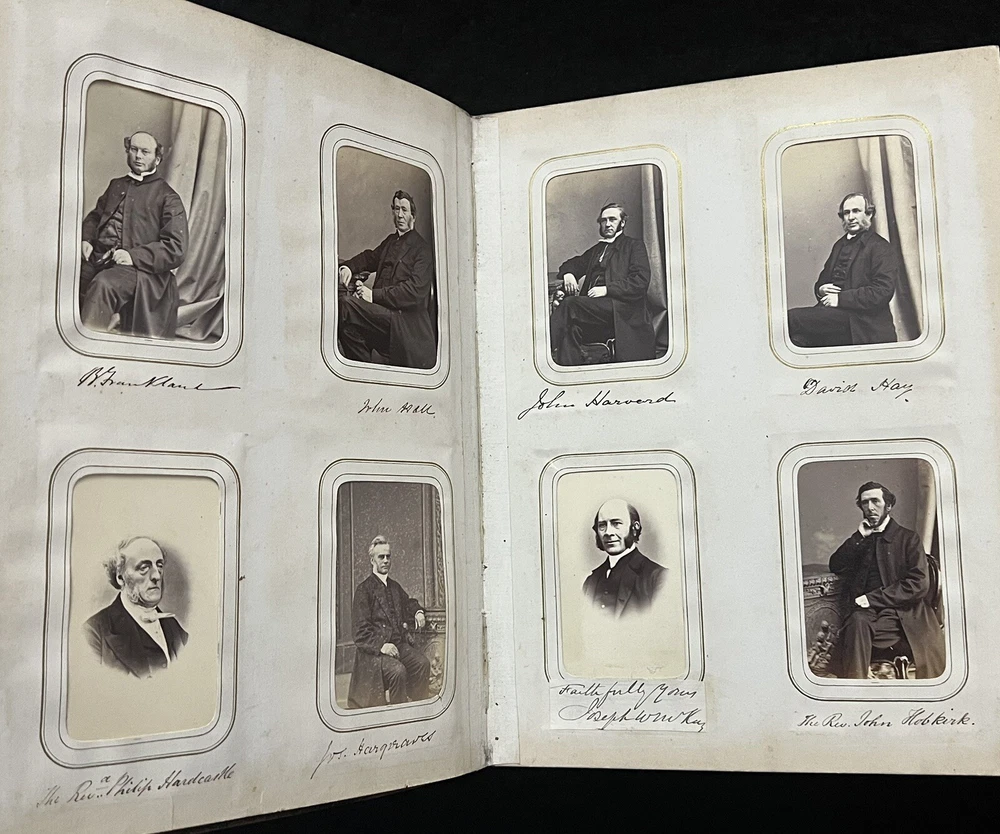 B. Frankland
John Hall
The Revd. Philip Hardcastle
Jos. Hargreaves
John Harvard
David Hay
Faithfully Yours
Joseph W McKay
The Rev. John Hobkirk.